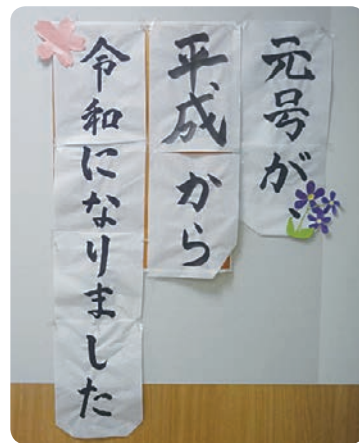 元号が、
平成から
令和になりました